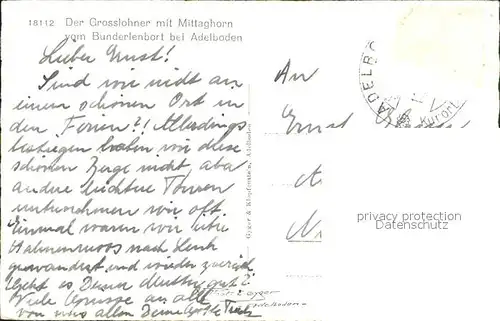 18112 Der Grosslohner mit Mittaghorn
vom Bunderlenbort bei Adelboden
Lieber Ernst!
Sind wir nicht an
einem schönen Ort in
den Ferien?! Allerdings
bestiegen haben wir diese
schönen Berge nicht, aber
andere leichtere Touren
unternehmen wir oft.
Einmal waren wir über
Hahnenmoos nach Lenk
gewandert und wieder zurück
Geht es Deiner Mutter gut?
Viele Grüsse an alle
von uns allen Deine
Gyger & Klopfenstein, Adelboden
An
Ernst
ADELB
Kurort
privacy protection
Datenschutz
Gyger
Adelboden